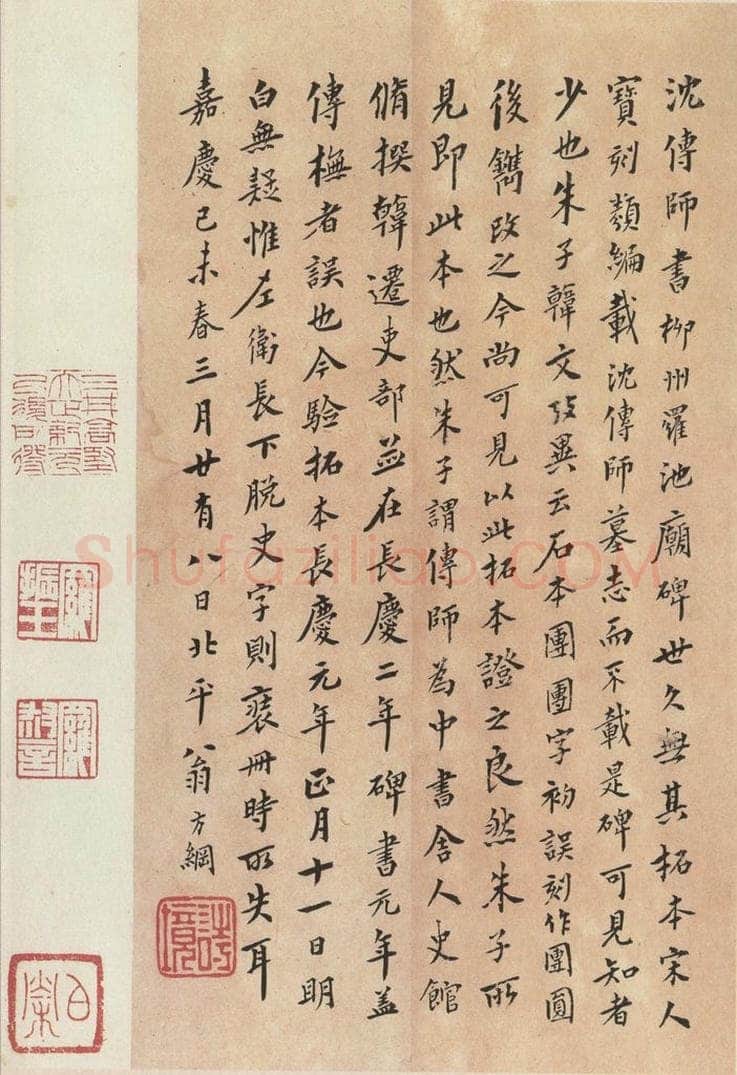 沈傳師書柳州羅池廟碑世久無其拓本宋人
寶刻類編載沈傳師墓志而不載是碑可見知者
少也朱子韓文攷異云石本團團字初誤刻作團圓
後鐫改之今尚可見以此拓本證之良然朱子所
見即此本也然朱子謂傳師為中書舍人史館
脩撰韓遷吏部並在長慶二年碑書元年蓋
傳橅者誤也今驗拓本長慶元年正月十一日明
白無疑惟左衛長下脱史字則裝冊時所失耳
嘉慶己未春三月廿有八日北平翁方綱
詩境
羅振玉
Shufaziliao.COM